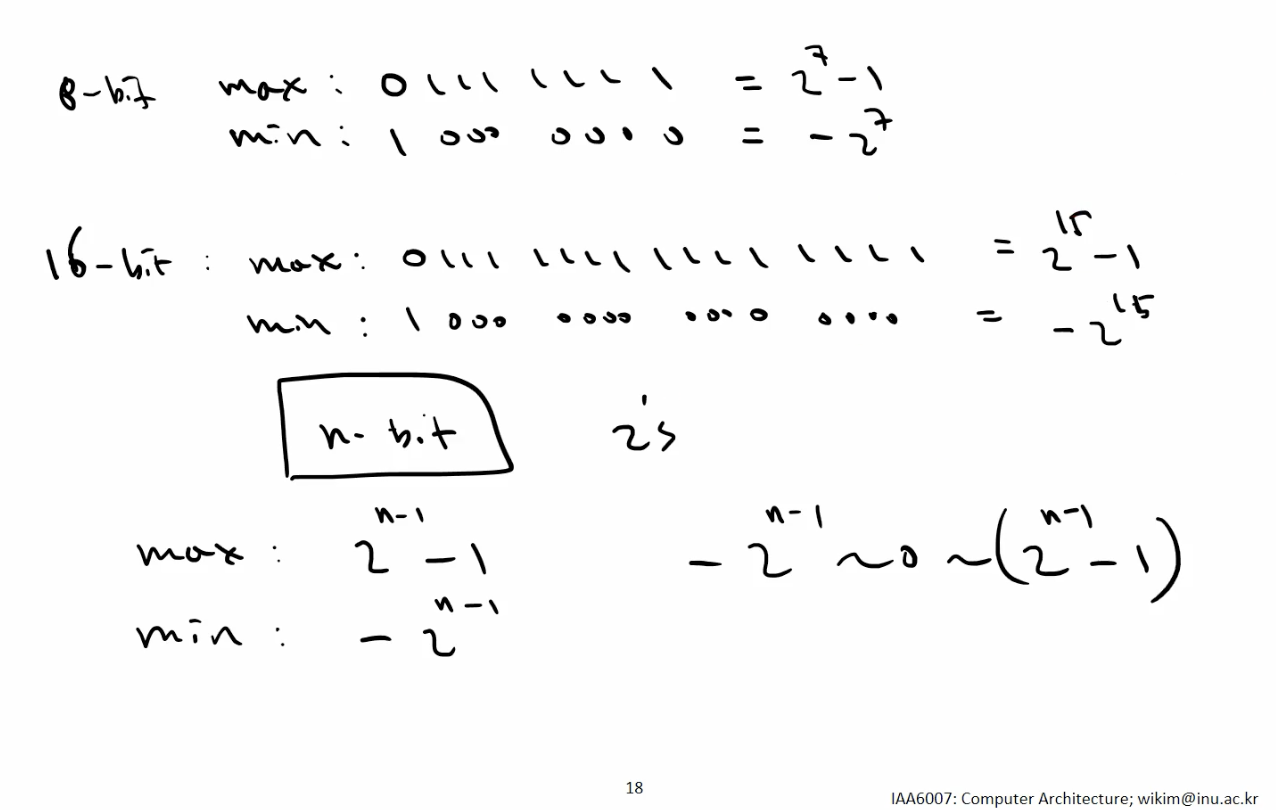 8-bit max: 0111 1111 = 2^7 - 1
min: 1000 0000 = -2^7
16-bit: max: 0111 1111 1111 1111 = 2^15 - 1
min: 1000 0000 0000 0000 = -2^15
n-bit 2's
max: 2^(n-1) - 1 -2^(n-1) ~ 0 ~ (2^(n-1) - 1)
min: -2^(n-1)
18
IAA6007: Computer Architecture; wikim@inu.ac.kr